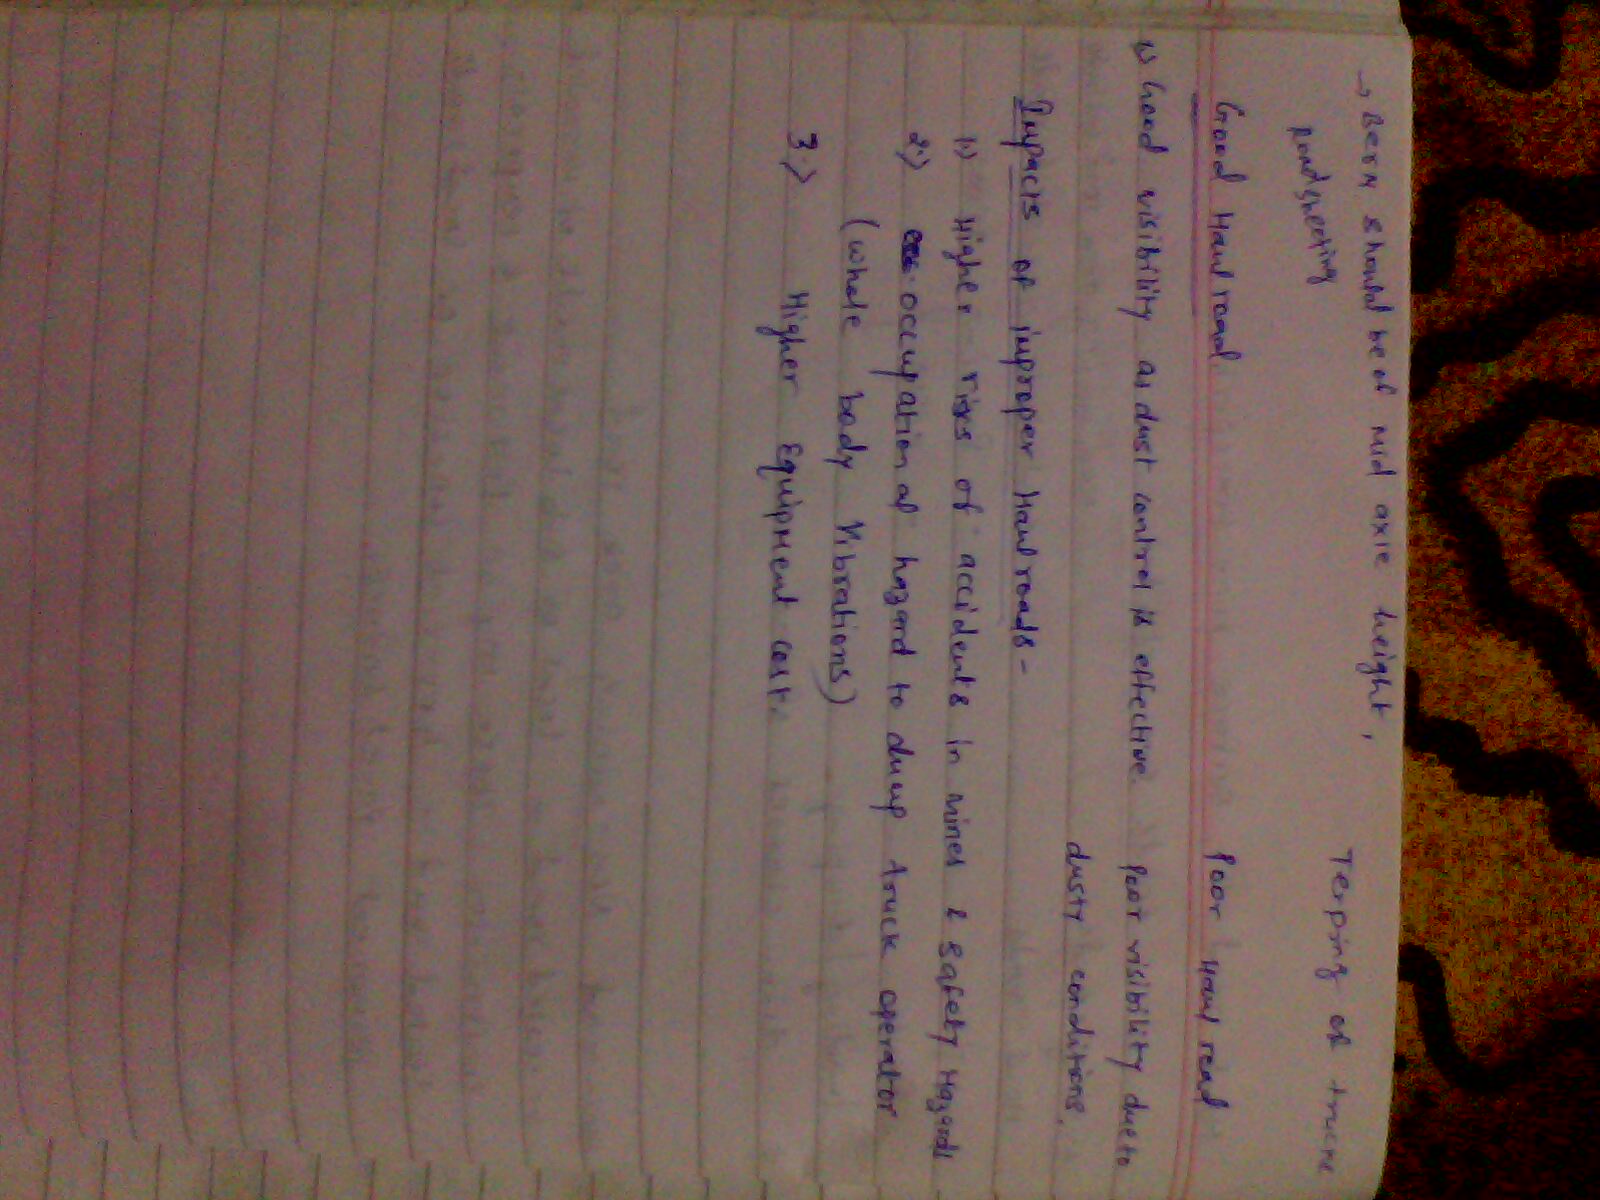 → Berm should be of mid axle height,
Terping of truck
Good Haul road.
Poor Haul road
1) Good visibility as dust control is effective
Poor visibility due to
dusty conditions.
Impacts of improper Haul roads -
1) Higher risks of accidents in mines & safety Hazards
2.) occupational hazard to dump truck operator
(whole body Vibrations)
3.) Higher Equipment cost.